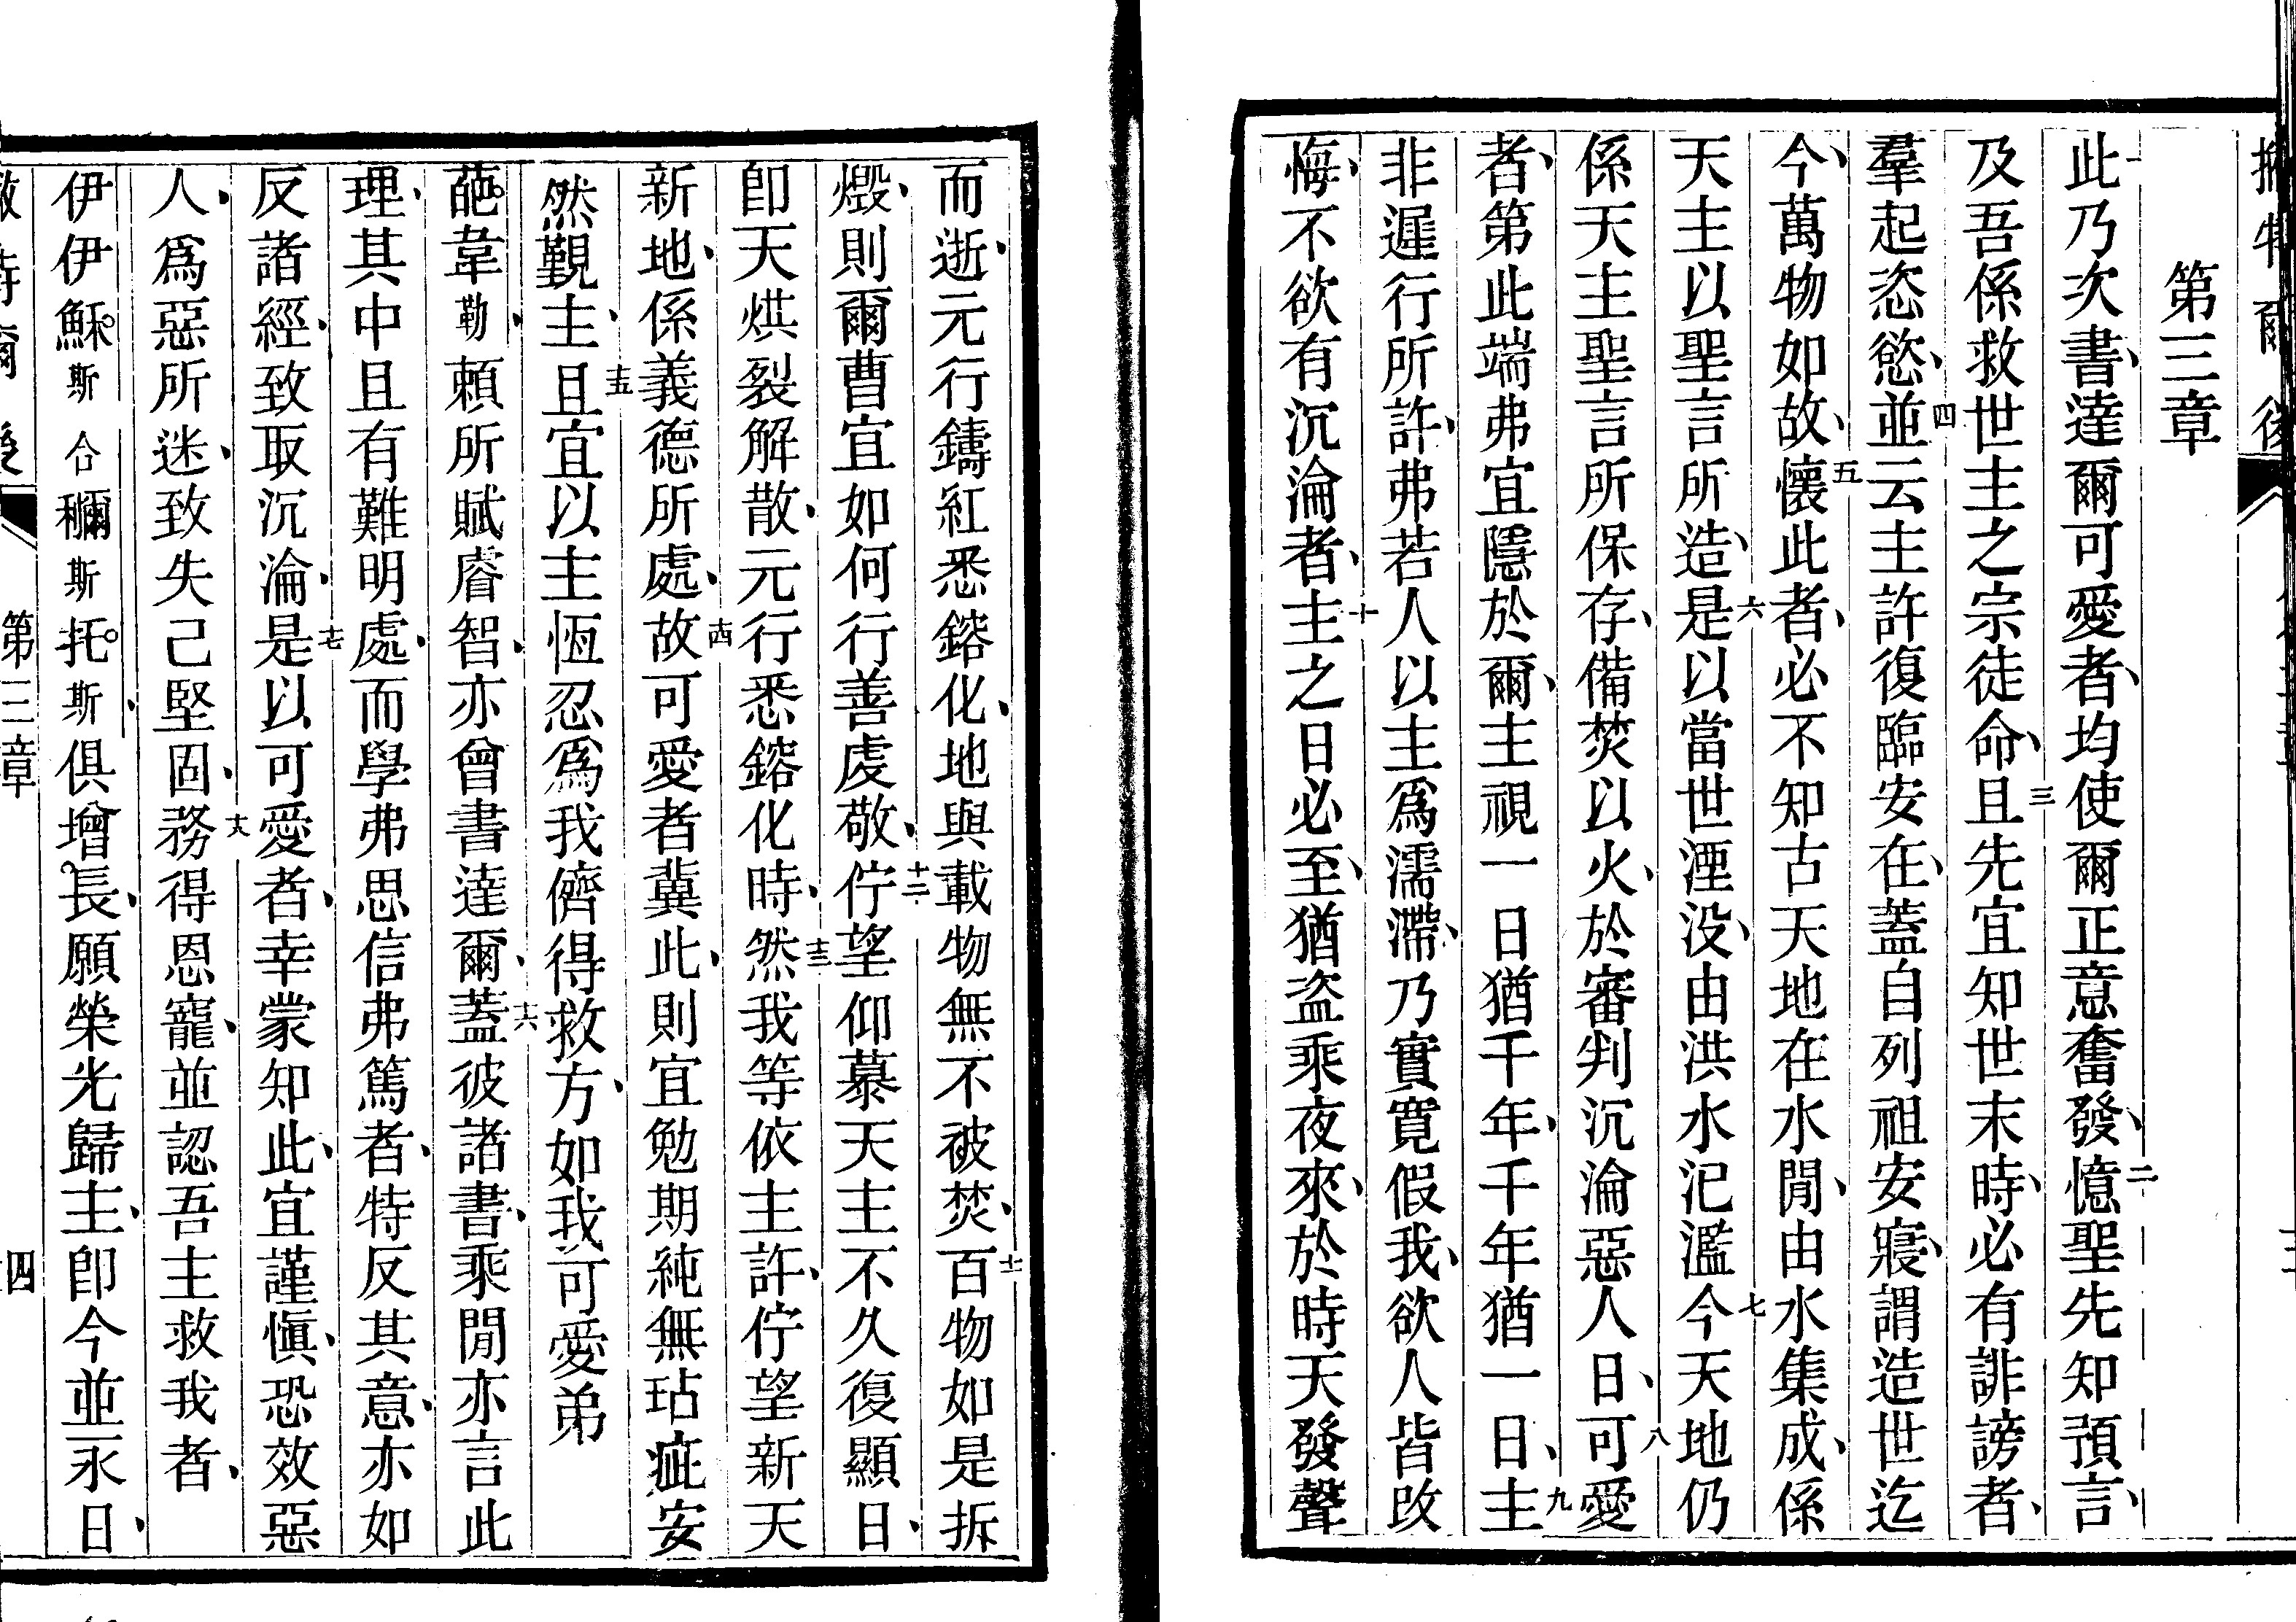 第三章
此乃次書、達爾可愛者、均使爾正意奮發、二憶聖先知預言、
及吾係救世主之宗徒命、三且先宜知世末時、必有誹謗者、
羣起恣慾、四並云主許復臨安在、蓋自列祖安寢、謂造世迄
今、萬物如故、五懷此者、必不知古天地在水閒、由水集成、係
天主以聖言所造、六是以當世湮没、由洪水汜濫七今天地仍
係天主聖言所保存、備焚以火、於審判沉淪惡人日、八可愛
者、第此端弗宜隱於爾、主視一日猶千年、千年猶一日、九主
非遲行所許、弗若人以主爲濡滯、乃實寬假我、欲人皆改
悔、不欲有沉淪者、十主之日必至、猶盜乘夜來、於時天發聲
而逝、元行鑄紅悉鎔化、地與載物無不被焚、十一百物如是拆
燬、則爾曹宜如何行善虔敬、十二佇望仰慕天主不久復顯日、
卽天烘裂解散、元行悉鎔化時、十三然我等依主許、佇望新天
新地、係義德所處、十四故可愛者冀此、則宜勉期純無玷疵安
然覲主、十五且宜以主恆忍爲我儕得救方、如我可愛弟
葩韋勒、賴所賦睿智、亦曾書達爾、十六蓋彼諸書、乘閒亦言此
理、其中且有難明處、而學弗思信弗篤者、特反其意、亦如
反諸經、致取沉淪、十七是以可愛者、幸蒙知此、宜謹愼、恐效惡
人、爲惡所迷、致失己堅固、十八務得恩寵、並認吾主救我者、
伊伊穌斯合穪斯托斯、俱增長、願榮光歸主、卽今並永日、
第三章
四